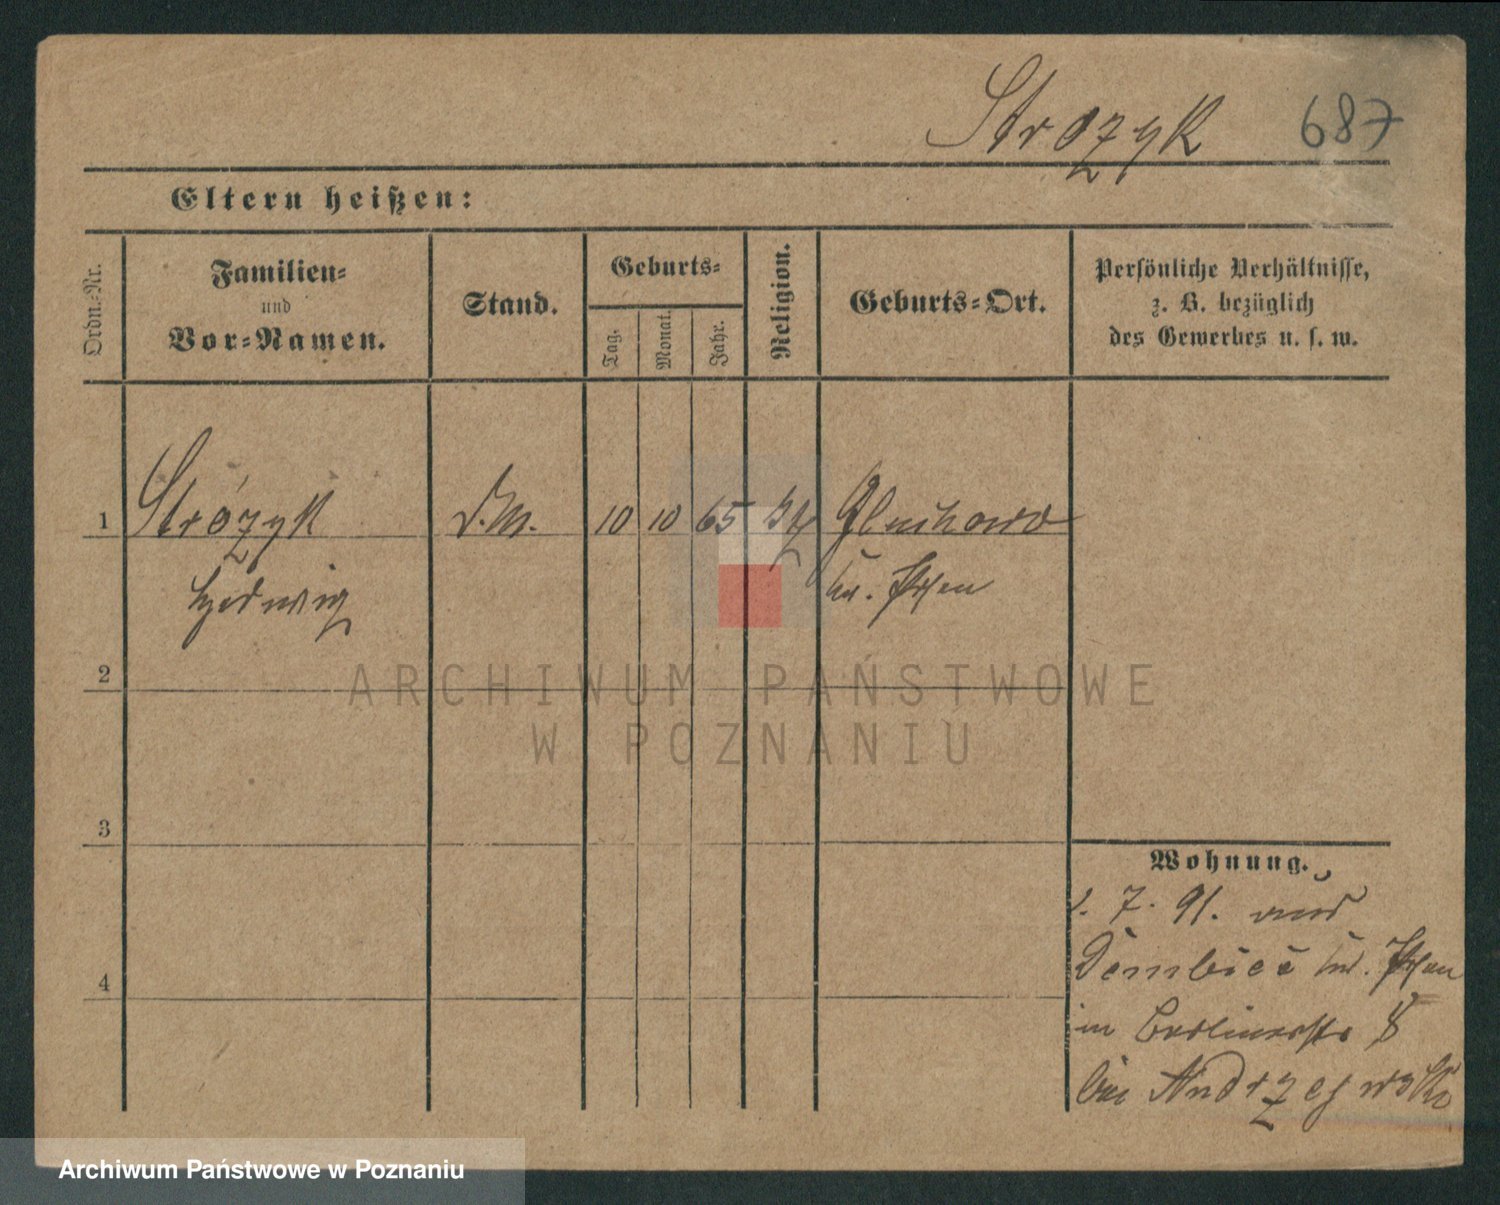 Strozyk 687
Eltern heißen:
Ordn.-Nr.
Familien-
und
Vor-Namen.
Stand.
Geburts-
Tag.
Monat.
Jahr.
Religion.
Geburts-Ort.
Persönliche Verhältnisse,
z. B. bezüglich
des Gewerbes u. s. w.
1 Strózyk D.M. 10 10 65 Gluchowo
Hedwig
ARCHIWUM PAŃSTWOWE
W POZNANIU
2
3
4
Wohnung.
1. 7. 91. aus
in Berlinerstr 8
bei Andrzejewski
Archiwum Państwowe w Poznaniu